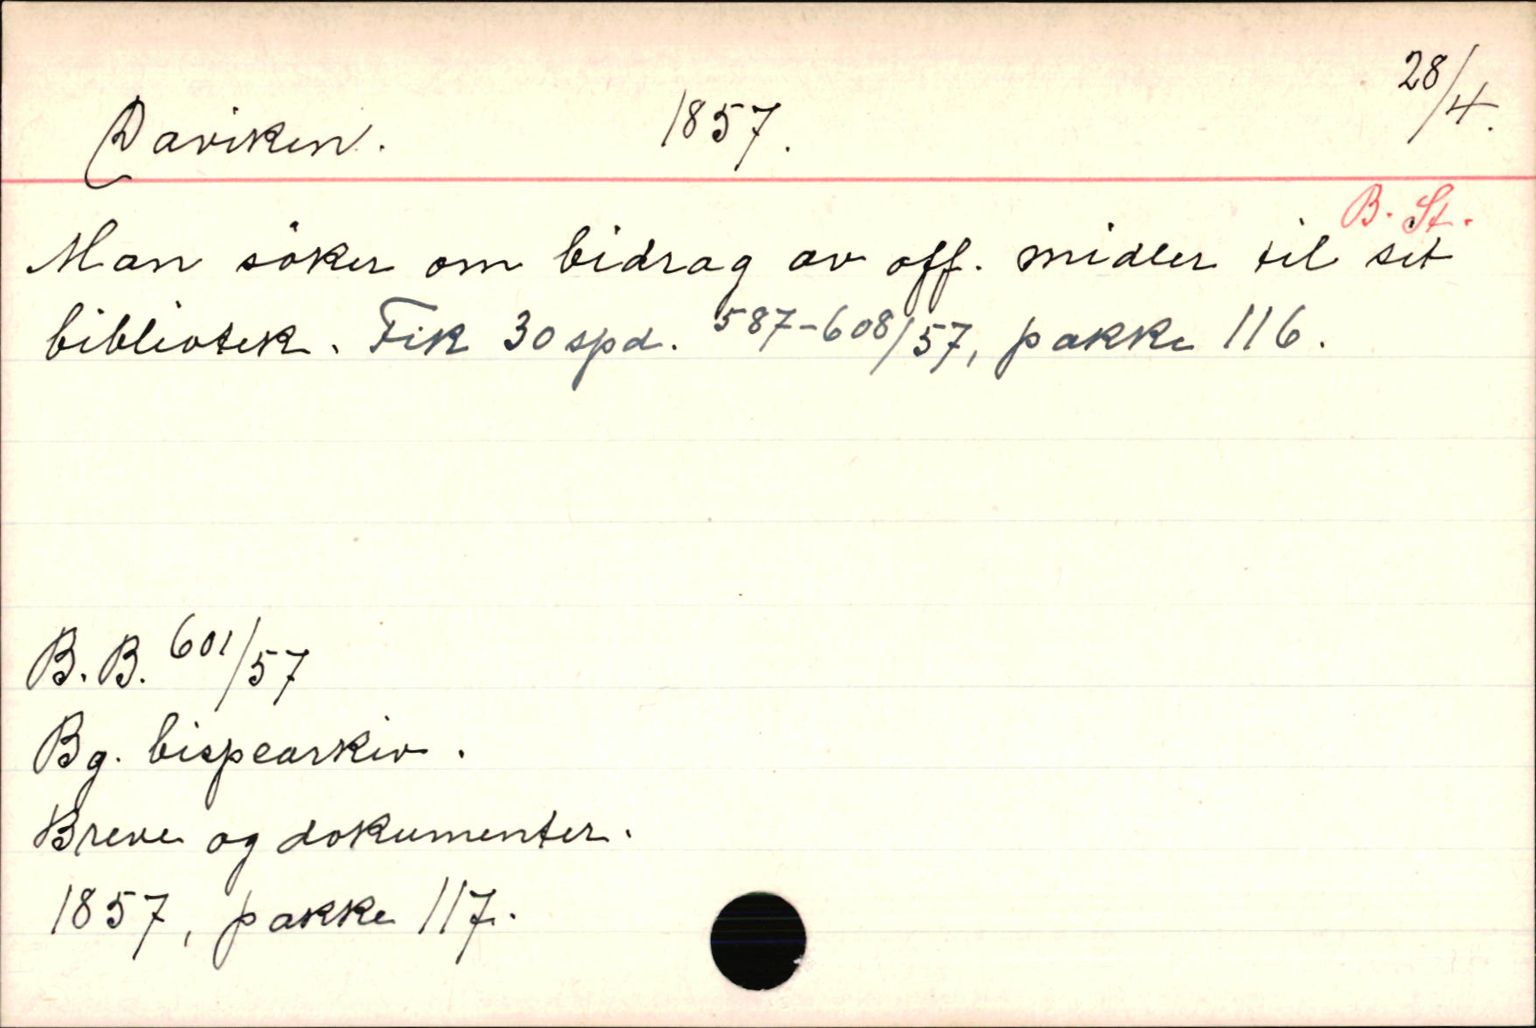 Daviken. 1857. 28/4.
B. St.
Man söker om bidrag av off. midler til sit
bibliotek. Fik 30 spd. 587-608/57, pakke 116.
B. B. 601/57
Bg. bispearkiv.
Breve og dokumenter.
1857, pakke 117.